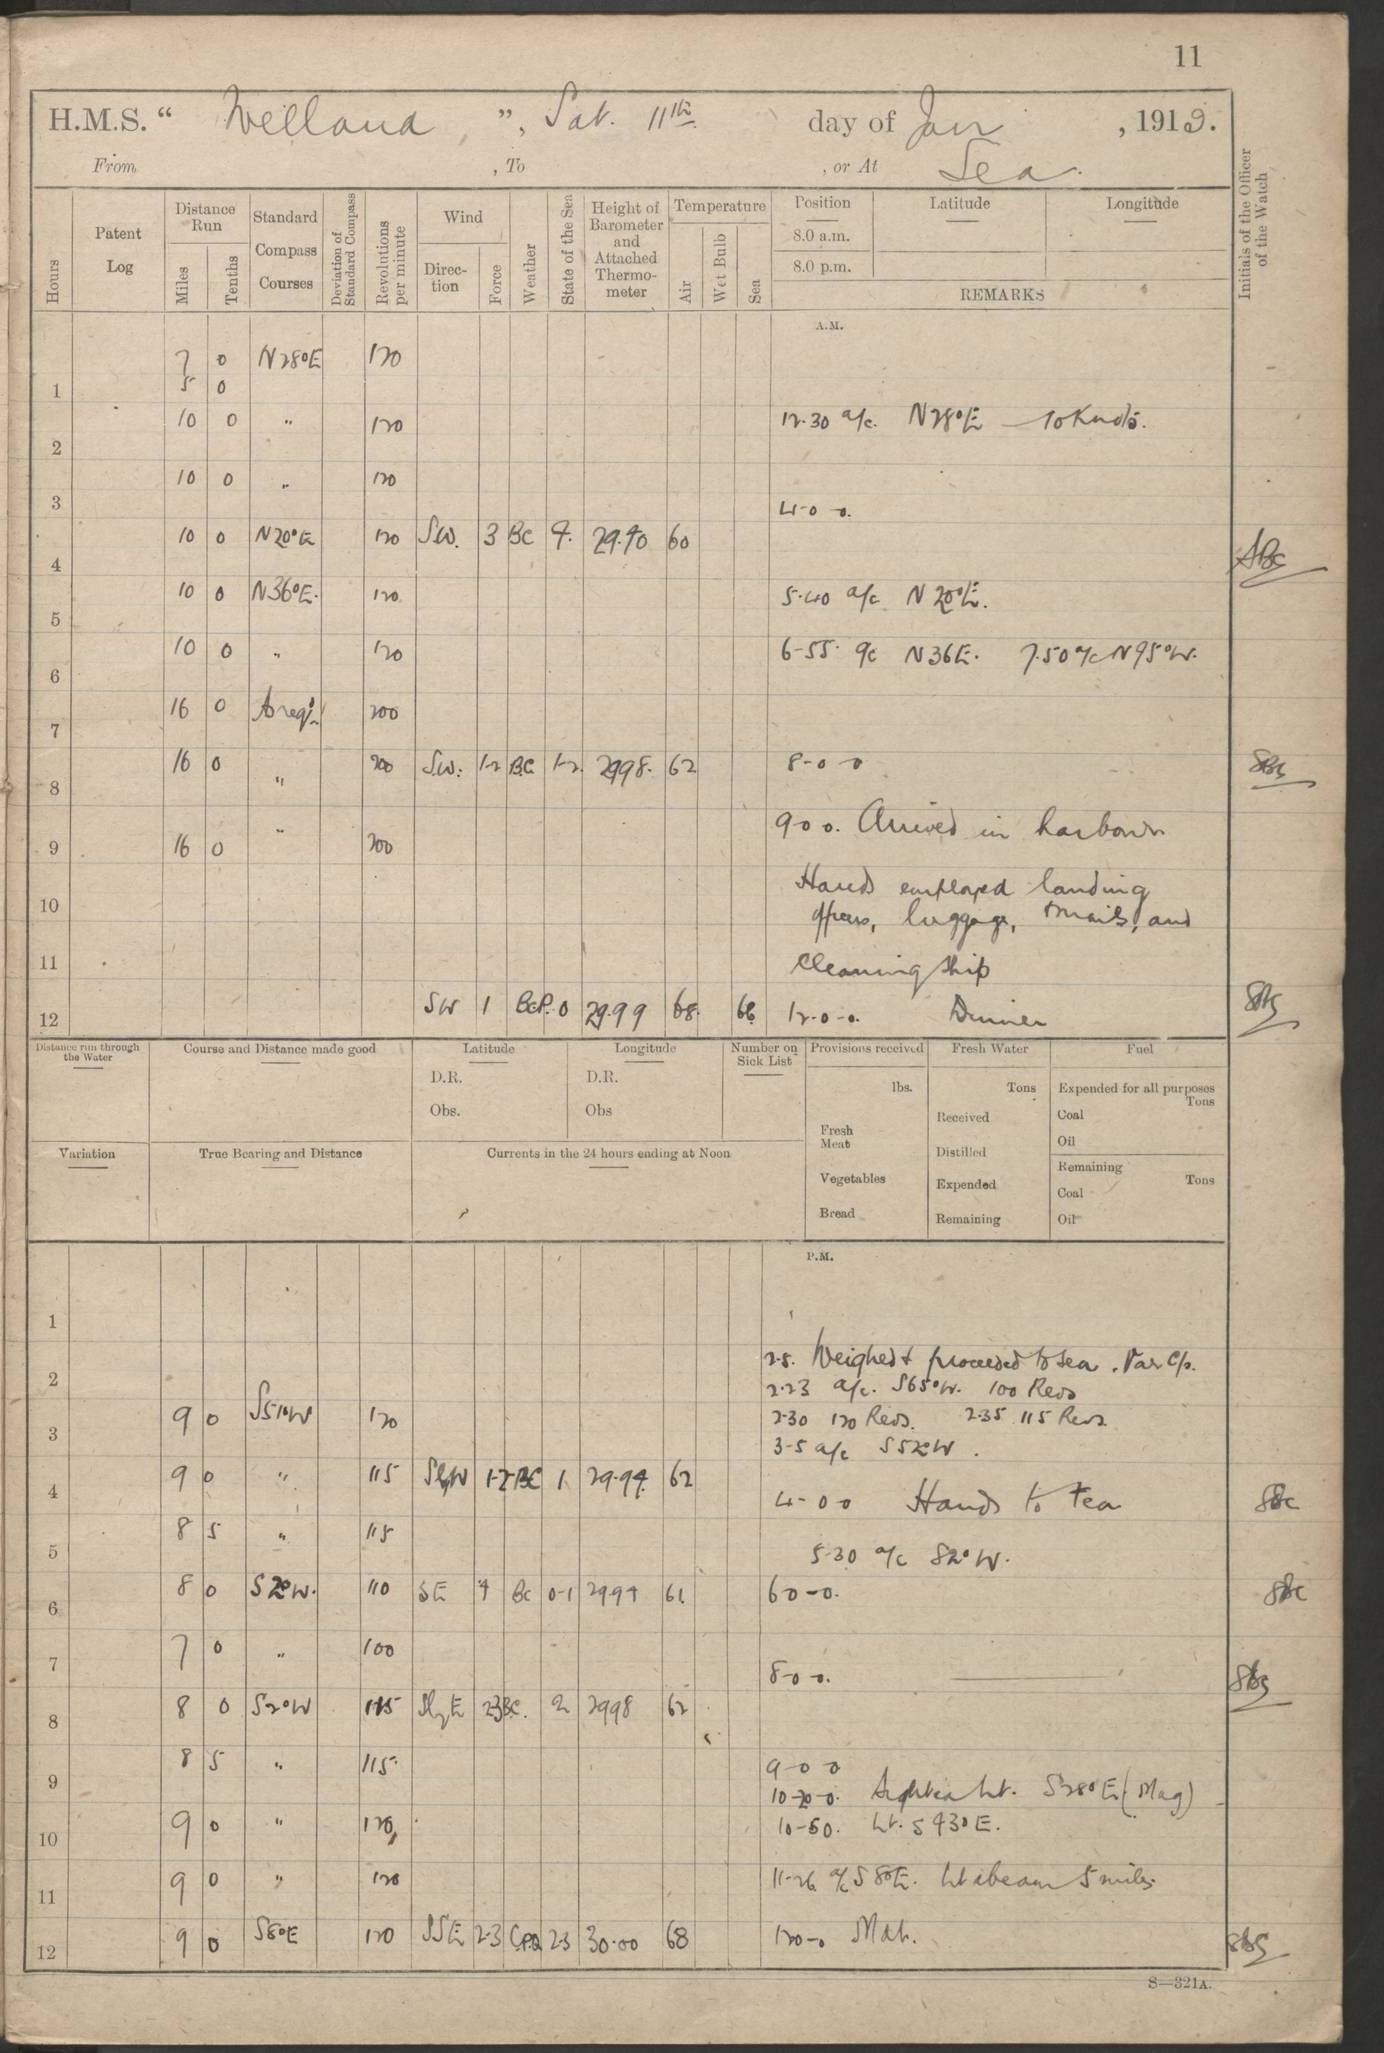 11
H.M.S. “ Welland ”, Sat. 11th day of Jan , 1919.
From , To , or At Sea.
Hours
Patent Log
Distance Run
Miles
Tenths
Standard Compass Courses
Deviation of Standard Compass
Revolutions per minute
Wind
Direction
Force
Weather
State of the Sea
Height of Barometer and Attached Thermometer
Temperature
Air
Wet Bulb
Sea
Position
8.0 a.m.
8.0 p.m.
Latitude
Longitude
REMARKS
Initials of the Officer of the Watch
A.M.
7 0 N28°E 120
1 5 0
2 10 0 " 120 12.30 a/c. N28°E – 10 Knots.
3 10 0 " 120
4-0-0.
4 10 0 N20°E 120 SW. 3 BC 4. 29.90 60
5 10 0 N36°E. 120 5.40 a/c N20°E.
6 10 0 " 120 6-55. a/c N36E. 7.50 a/c N95°W.
7 16 0 As req. 200
8 16 0 " 200 S.W. 1-2 B.C 1-2. 2998. 62 8-0-0
9 16 0 " 200 9-0-0. Arrived in harbour
10 Hands employed landing
officers, luggage, mails, and
11 cleaning ship
12 SW 1 BCP. 0 29.99 68. 66 12-0-0. Dinner
Distance run through the Water
Course and Distance made good
Latitude
D.R.
Obs.
Longitude
D.R.
Obs
Number on Sick List
Provisions received
lbs.
Fresh Meat
Vegetables
Bread
Fresh Water
Tons
Received
Distilled
Expended
Remaining
Fuel
Expended for all purposes
Tons
Coal
Oil
Remaining
Tons
Coal
Oil
Variation
True Bearing and Distance
Currents in the 24 hours ending at Noon
P.M.
1
2.5. Weighed & proceeded to sea. Var C/s.
2 2.23 a/c. S65°W. 100 Revs
3 9 0 120 2.30 120 Revs. 2.35 115 Revs
3-5 a/c S52°W.
4 9 0 " 115 SbyW 1-2 BC 1 29.94. 62
4-0-0 Hands to Tea
5 8 5 " 115
5.30 a/c S2°W.
6 8 0 S2°W. 110 SE 4 BC 0-1 2994 61. 6-0-0.
7 7 0 " 100
8-0-0.
8 8 0 S2°W 115 SbyE 2-3 BC. 2 2998 62
9 8 5 " 115. 9-0-0
10-20-0. Sighted Lt. S28°E (Mag)
10 9 0 " 120 10-50. Lt. S43°E.
11 9 0 " 120 11-26 a/c S8°E. Lt abeam 5 miles.
12 9 0 S8°E 120 SSE 2-3 2-3 30.00 68 12-0-0
S—321A.